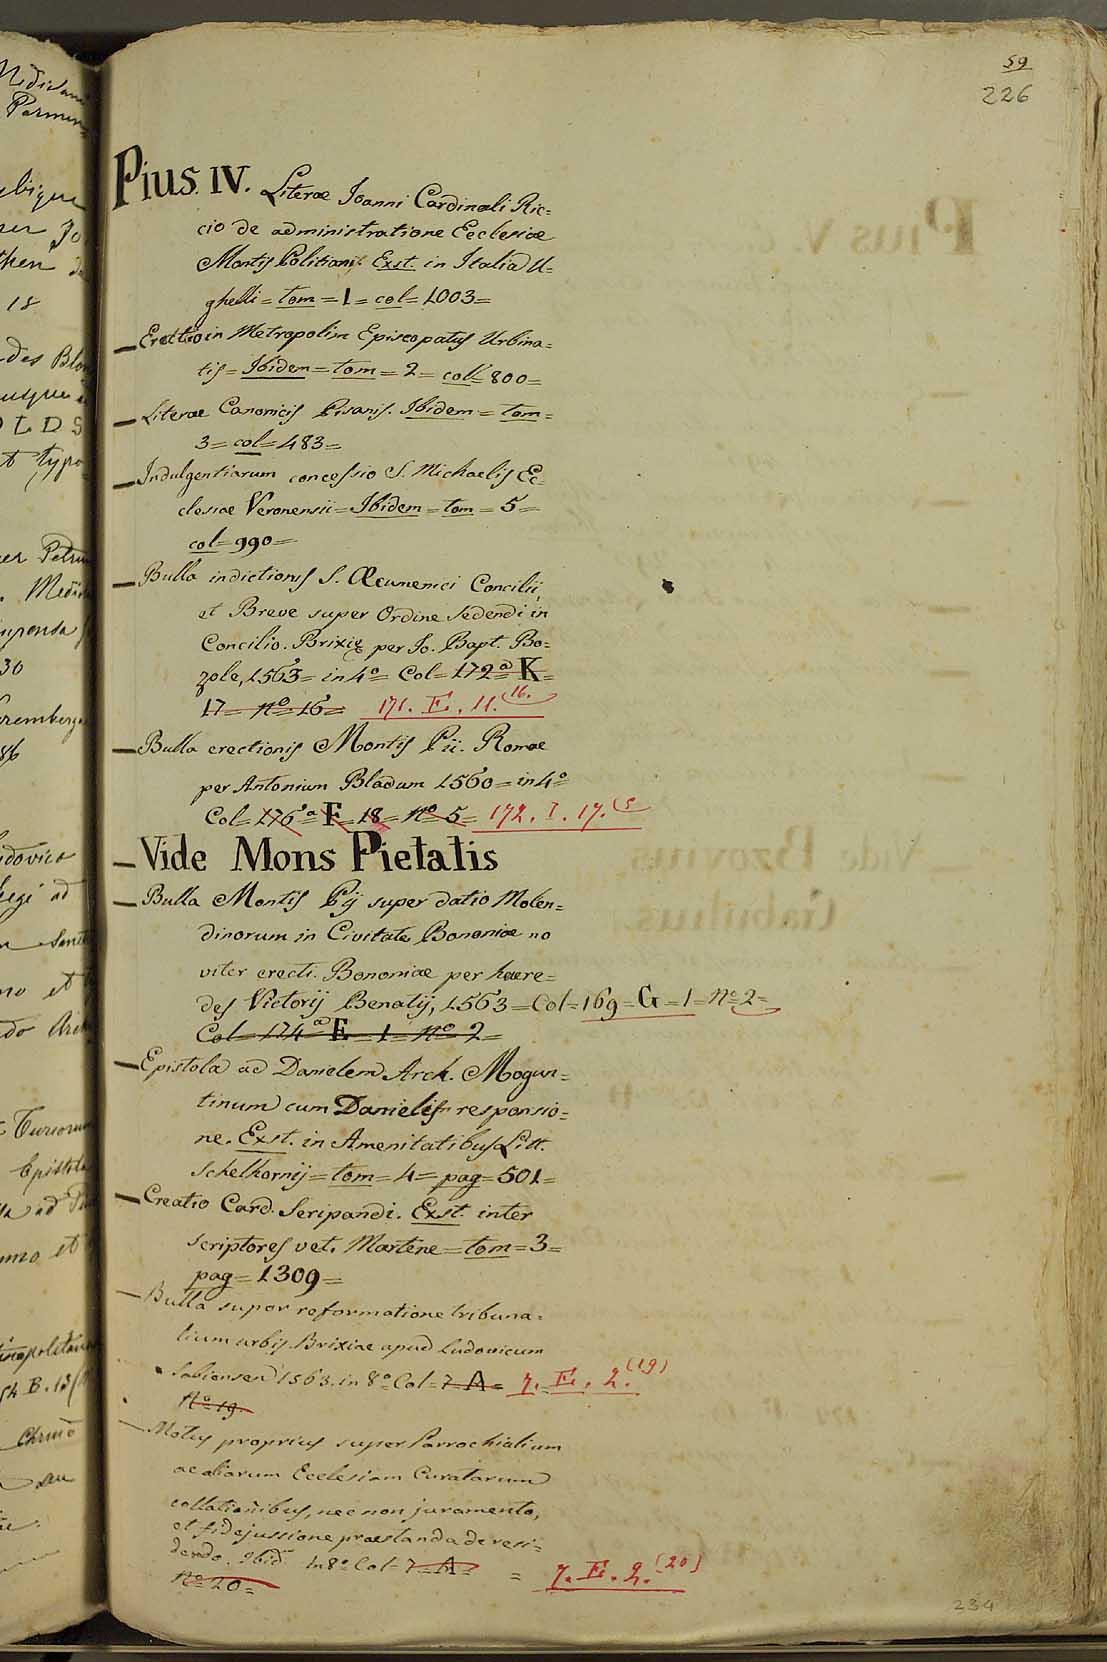 59
226
Pius. IV. Literae Joanni Cardinali Ric=
cio de administratione Ecclesiae
Montis Politiani. Exst. in Italia U=
ghelli = tom = 1 = col = 1003 =
Erectio in Metropolim Episcopatus Urbina=
tis = Ibidem = tom = 2 = col = 800 =
Literae Canonicis Pisanis. Ibidem = tom =
3 = col = 483 =
Indulgentiarum concessio S. Michaelis Ec=
clesiae Veronensis = Ibidem = tom = 5 =
col = 990 =
Bulla indictionis S. Œcumenici Concilii,
et Breve super Ordine sedendi in
Concilio. Brixię per Jo. Bapt. Bo=
zole, 1563 = in 4º = Col = 172ª K =
17 = Nº 16 = 171. E. 11. (16.
Bulla erectionis Montis Pii. Romae
per Antonium Bladum 1560 = in 4º =
Col = 176ª = F = 18 = Nº 5 = 172. I. 17. (5
Vide Mons Pietatis
Bulla Montis Pij super datio Molen=
dinorum in Civitate Bononiae no
viter erecti. Bononiae per haere=
des Victorij Benatij, 1563 = Col = 169 = G = 1 = Nº 2 =
Col = 174ª E = 1 = Nº 2 =
Epistola ad Danielem Arch. Mogun=
tinum cum Danielis responsio=
ne. Exst. in Amenitatibus Litt.
Schelhornij = tom = 4 = pag = 501 =
Creatio Card. Seripandi. Exst. inter
scriptores vet. Martene = tom = 3 =
pag = 1309 =
Bulla super reformatione tribuna=
lium urbis Brixiae apud Ludovicum
Sabiensem 1563. in 8º Col = 7 A = 7. E. 2. (19)
Nº 19.
Motus proprius super Parrochialium
ac aliarum Ecclesiam Curatarum
collationibus, nec non juramento,
et fidejussione praestanda de resi=
dendo. Ibid. In 8º Col = 7 A = = 7. E. 2. (20)
Nº 20 =
234